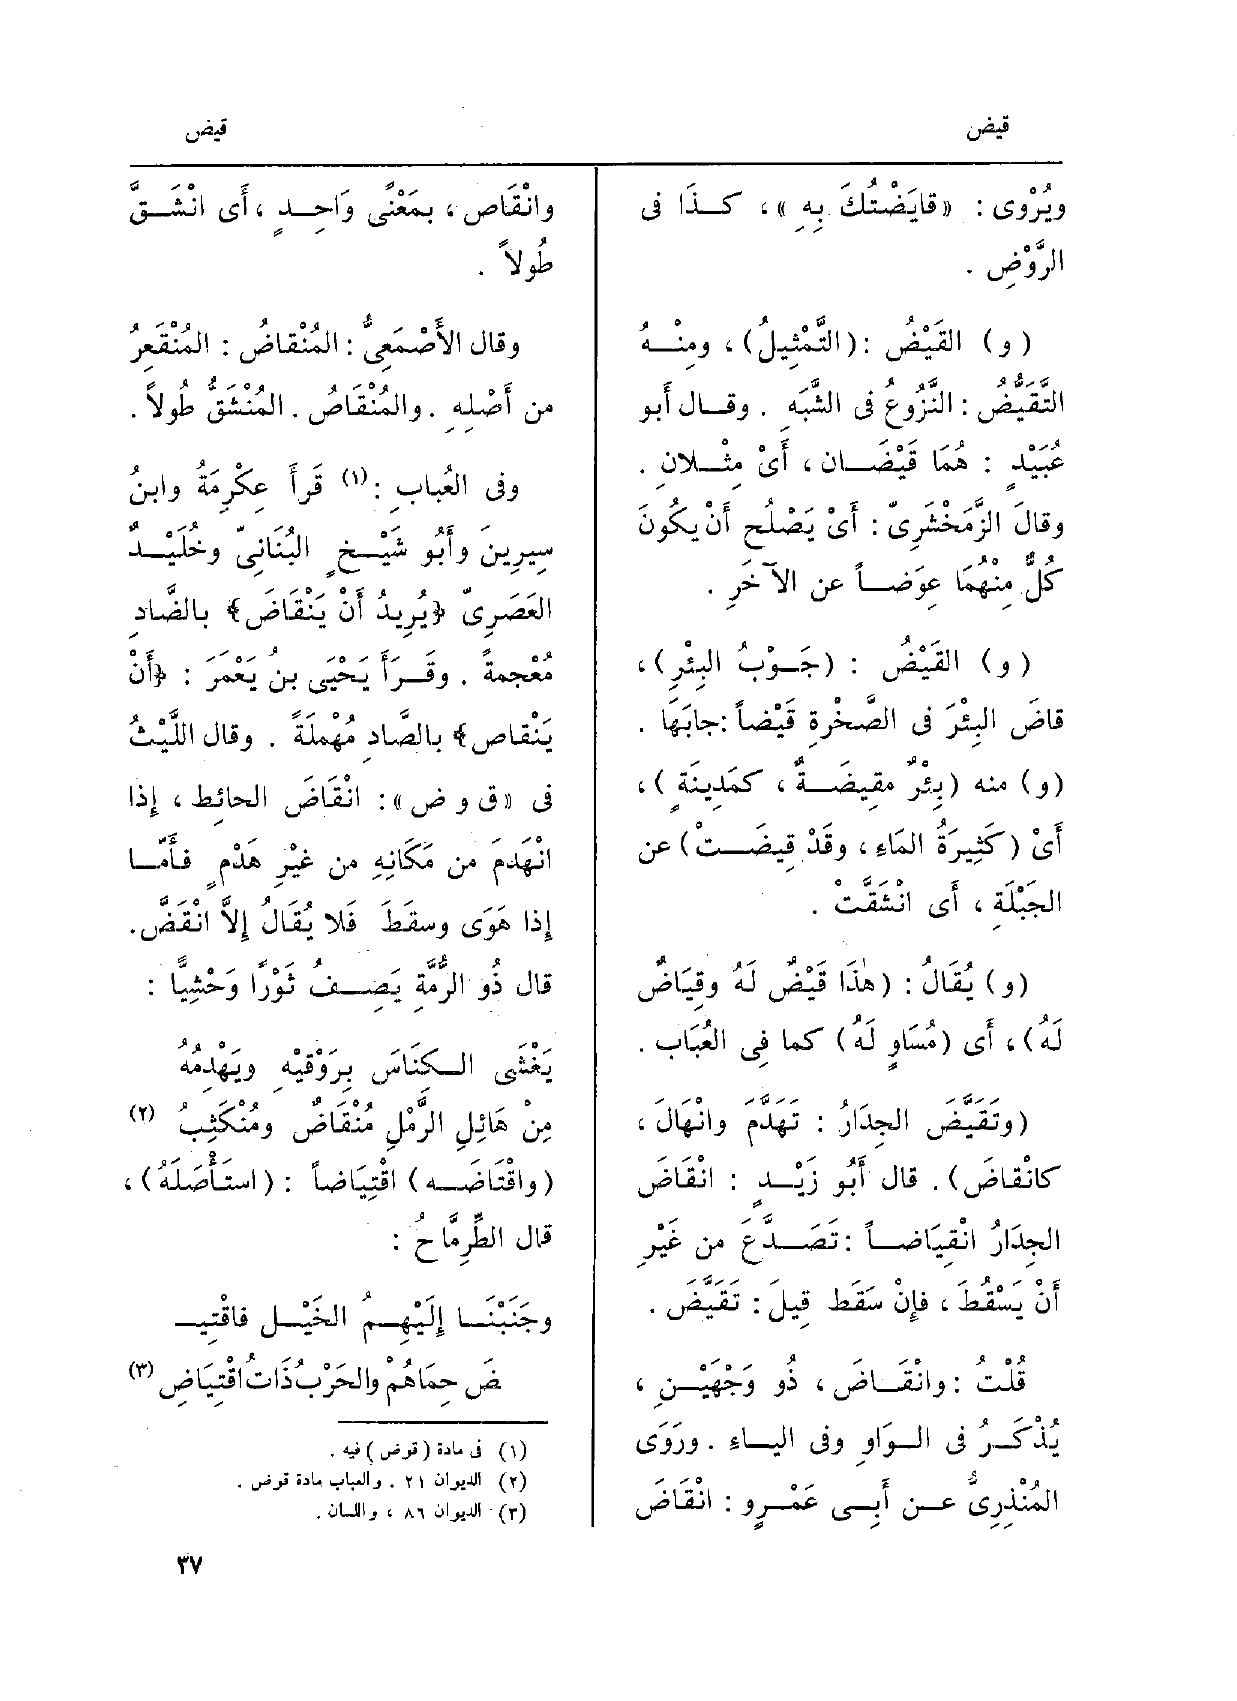 قيض
قيض
ويُرْوى : «قايَضْتُكَ بِهِ» ، كـذَا فى
الرَّوْضِ .
(و) القَيْضُ : (التَّمْثِيلُ) ، ومنْـهُ
التَّقَيُّضُ : النُّزُوعُ فى الشَّبَهِ . وقـال أَبو
عُبَيْدٍ : هُمَا قَيْضَـان ، أَىْ مِثْـلانِ .
وقالَ الزَّمَخْشَرِىّ : أَىْ يَصْلُح أَنْ يكُونَ
كُلٌّ مِنْهُمَا عِوَضـاً عن الآخَرِ .
(و) القَيْضُ : (جَـوْبُ البِئْرِ) ،
قاضَ البِئْرَ فى الصَّخْرةِ قَيْضاً : جابَهَا .
(و) منه (بِئْرٌ مقِيضَـةٌ ، كمَدِينَةٍ) ،
أَىْ (كَثِيرَةُ المَاءِ ، وقَدْ قِيضَـتْ) عن
الجَبْلَةِ ، أَى انْشَقَّتْ .
(و) يُقَالُ : (هٰذَا قَيْضٌ لَهُ وقِيَاضٌ
لَهُ) ، أَى (مُسَاوٍ لَهُ) كما فِى العُبَابِ .
(وتَقَيَّضَ الجِدَارُ : تَهَدَّمَ وانْهَالَ ،
كانْقاضَ) . قال أَبُو زَيْـدٍ : انْقَاضَ
الجِدَارُ انْقِيَاضـاً : تَصَـدَّعَ من غَيْرِ
أَنْ يَسْقُطَ ، فإِنْ سَقَط قِيلَ : تَقَيَّضَ .
قُلْتُ : وانْقَـاضَ ، ذُو وَجْهَيْـنِ ،
يُذْكَـرُ فى الـوَاوِ وفى اليـاءِ . ورَوَى
المُنْذِرِىُّ عـن أَبِـى عَمْـرٍو : انْقَاضَ
وانْقَاص ، بمَعْنًى وَاحِـدٍ ، أَى انْشَـقَّ
طُولاً .
وقال الأَصْمَعِىُّ : المُنْقاضُ : المُنْقَعِرُ
من أَصْلِهِ . والمُنْقَاصُ . المُنْشَقُّ طُولاً .
وفى العُبابِ : (١) قَرأَ عِكْرِمَةُ وابنُ
سِيرِينَ وأَبُو شَيْـخٍ البُنَانِىّ وخُلَيْـدٌ
العَصَرِىّ ﴿يُرِيدُ أَنْ يَنْقَاضَ﴾ بالضَّادِ
مُعْجمةً . وقَـرَأَ يَحْيَى بن يَعْمَرَ : ﴿أَنْ
يَنْقاص﴾ بالصَّادِ مُهْمَلَةً . وقال اللَّيْثُ
فى «ق و ض» : انْقَاضَ الحائِط ، إِذا
انْهَدَمَ من مَكَانِهِ من غَيْرِ هَدْمٍ فـأَمَّـا
إِذا هَوَى وسقَطَ فَلا يُقَالُ إِلاَّ انْقَضَّ .
قال ذُو الرُّمَّةِ يَصِـفُ ثَوْرًا وَحْشِيًّا :
يَغْشَى الـكِنَاسَ بِرَوْقَيْهِ ويَهْدِمُهُ
مِنْ هَائِلِ الرَّمْلِ مُنْقَاضٌ ومُنْكَثِبُ (٢)
(واقْتَاضَـه) اقْتِيَاضاً : (استَأْصَلَهُ) ،
قال الطِّرِمَّاحُ :
وجَنَبْنَـا إِلَيْهِـمُ الخَيْـلَ فاقْتِيـ
ـضَ حِمَاهُمْ والحَرْبُ ذَاتُ اقْتِيَاضِ (٣)
(١) فى مادة (قوض) فيه .
(٢) الديوان ٢١ . والعباب مادة قوض .
(٣) الديوان ٨٦ ، واللسان .
٣٧